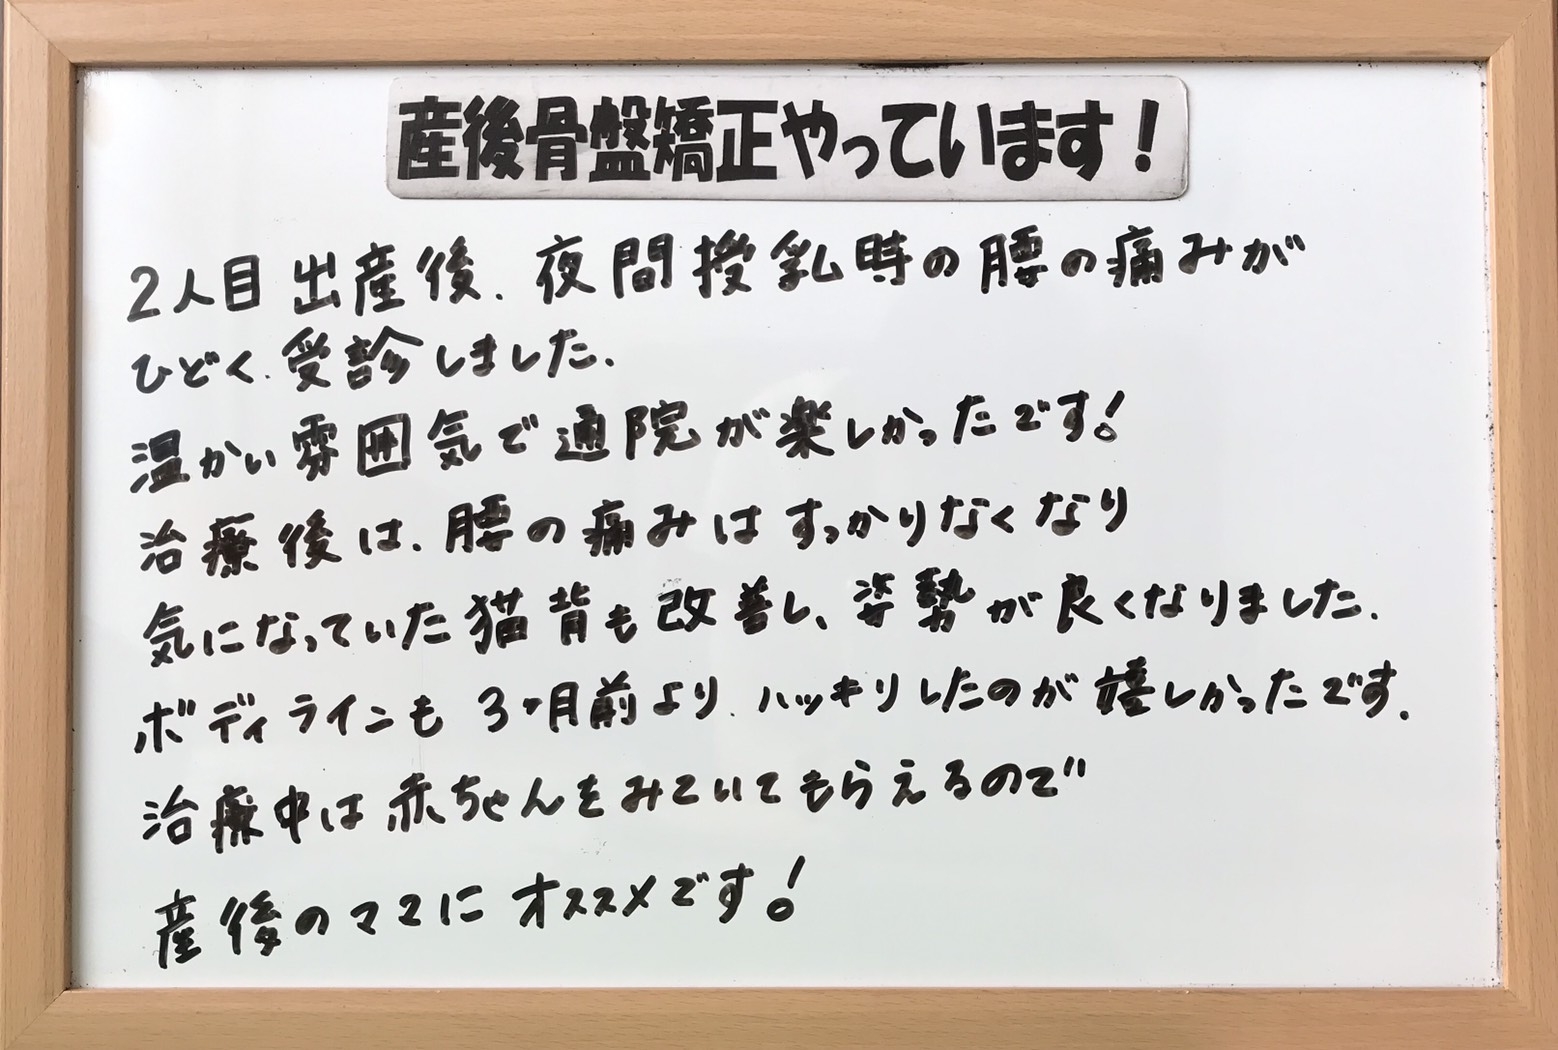 産後骨盤矯正やっています！
2人目出産後、夜間授乳時の腰の痛みが
ひどく、受診しました。
温かい雰囲気で通院が楽しかったです！
治療後は、腰の痛みはすっかりなくなり
気になっていた猫背も改善し、姿勢が良くなりました。
ボディラインも3ヶ月前より、ハッキリしたのが嬉しかったです。
治療中は赤ちゃんをみていてもらえるので
産後のママにオススメです！